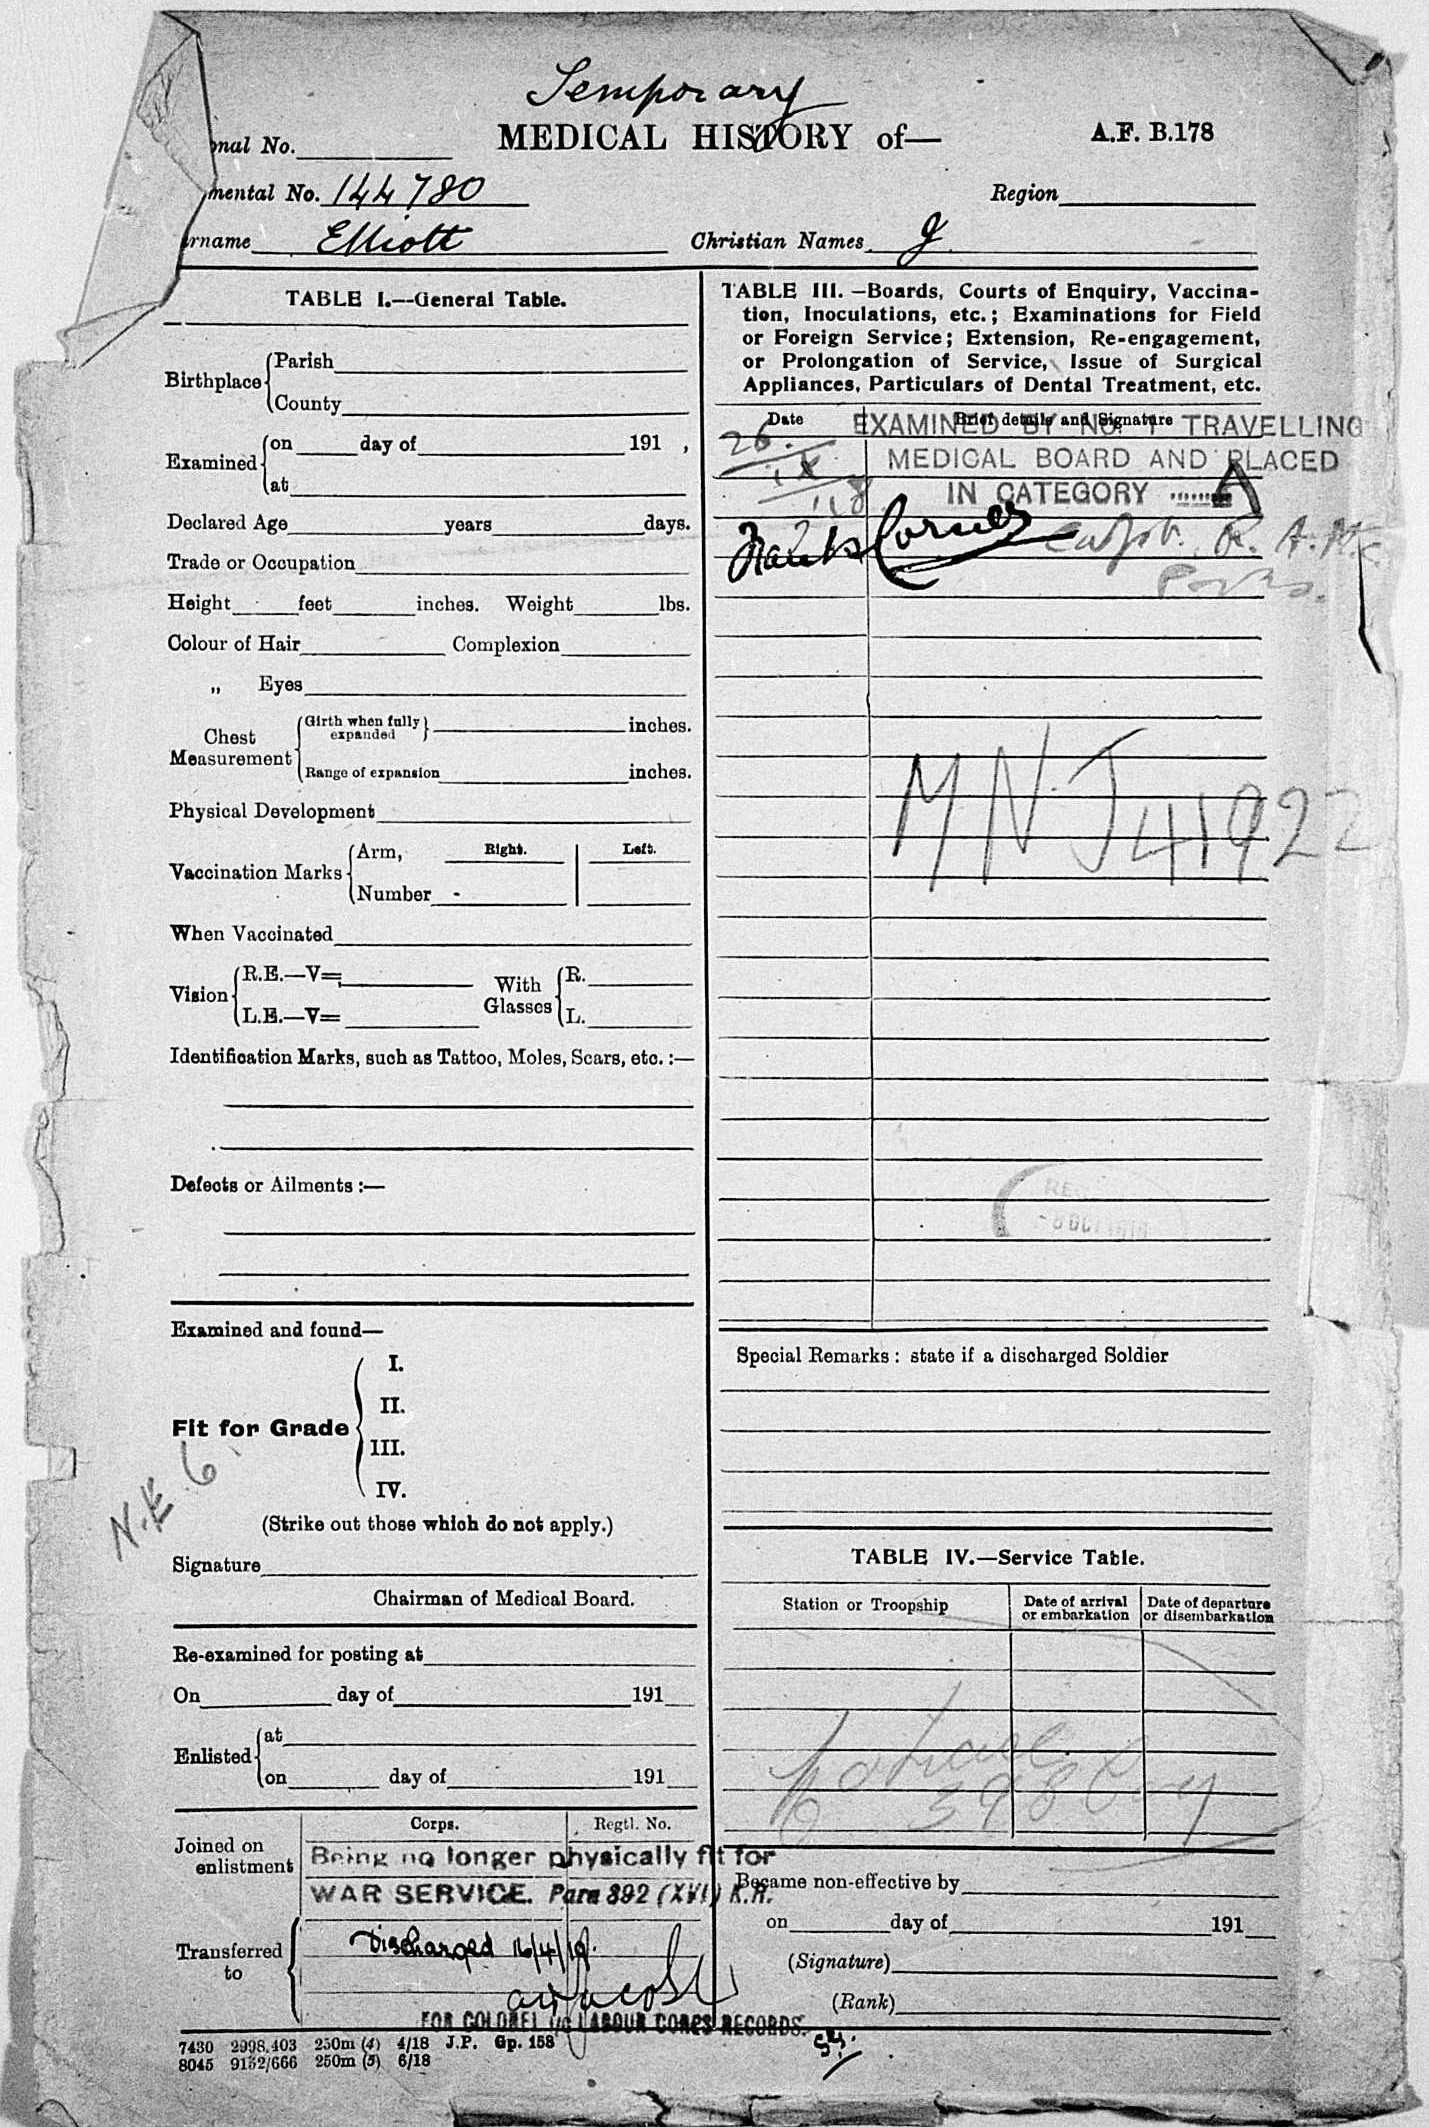 Temporary
MEDICAL HISTORY of—
A.F. B.178
onal No.
mental No. 144780
Region
rname Elliott
Christian Names J
TABLE I.—General Table.
Birthplace
Parish
County
Examined
on day of 191 ,
at
Declared Age years days.
Trade or Occupation
Height feet inches. Weight lbs.
Colour of Hair Complexion
„ Eyes
Chest Measurement
Girth when fully expanded inches.
Range of expansion inches.
Physical Development
Vaccination Marks
Arm, Right. Left.
Number
When Vaccinated
Vision
R.E.—V=
L.E.—V=
With Glasses
R.
L.
Identification Marks, such as Tattoo, Moles, Scars, etc. :—
Defects or Ailments :—
Examined and found—
Fit for Grade
I.
II.
III.
IV.
N.E. 6
(Strike out those which do not apply.)
Signature
Chairman of Medical Board.
Re-examined for posting at
On day of 191
Enlisted
at
on day of 191
Corps. Regtl. No.
Joined on enlistment
Being no longer physically fit for
WAR SERVICE. Para 392 (XVI) K.R.
Transferred to
Discharged 16/4/19.
FOR COLONEL i/c LABOUR CORPS RECORDS.
7430 2998.403 250m (4) 4/18 J.P. Gp. 158
8045 9132/666 250m (5) 6/18
TABLE III.—Boards, Courts of Enquiry, Vaccina-
tion, Inoculations, etc.; Examinations for Field
or Foreign Service; Extension, Re-engagement,
or Prolongation of Service, Issue of Surgical
Appliances, Particulars of Dental Treatment, etc.
Date Brief details and Signature
26/ix/18
EXAMINED BY NO. 1 TRAVELLING
MEDICAL BOARD AND PLACED
IN CATEGORY A
Frank Corner Capt. R.A.M.C.
MNJ 41922
8 OCT 1918
Special Remarks : state if a discharged Soldier
TABLE IV.—Service Table.
Station or Troopship
Date of arrival or embarkation
Date of departure or disembarkation
398 Coy
Became non-effective by
on day of 191
(Signature)
(Rank)